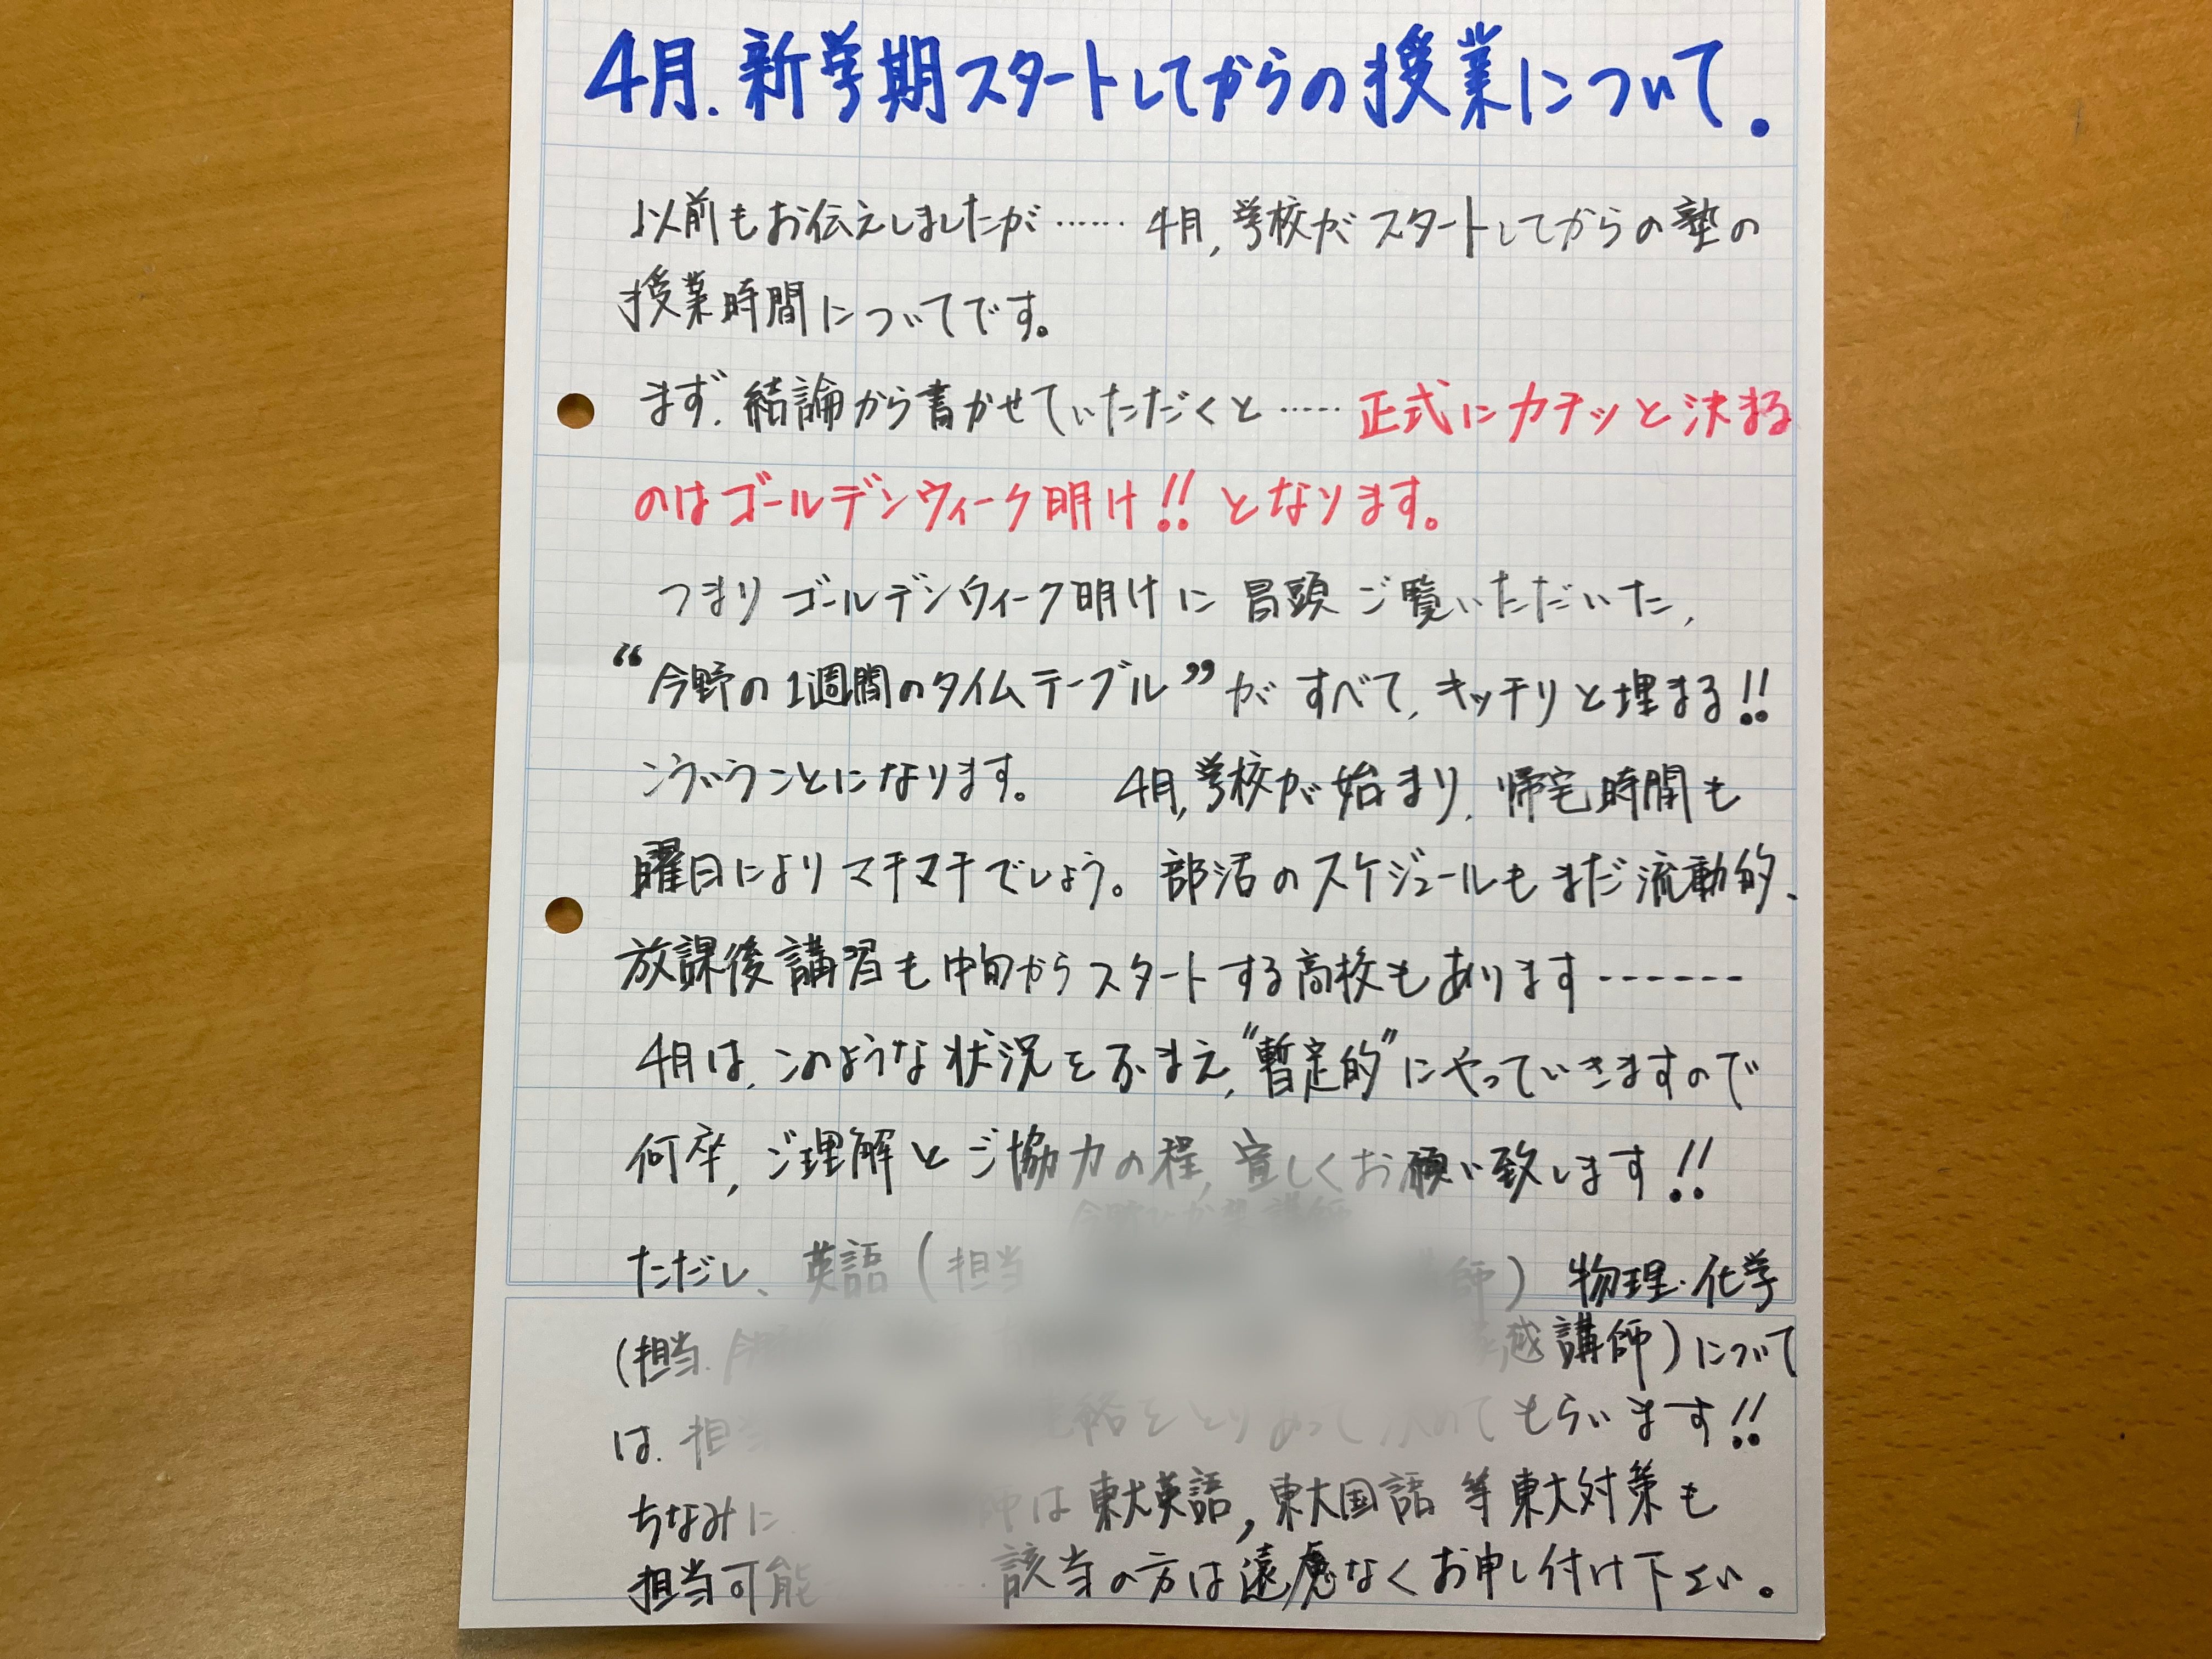 4月.新学期スタートしてからの授業について.
以前もお伝えしましたが……4月,学校がスタートしてからの塾の
授業時間についてです。
まず.結論から書かせていただくと……正式にカチッと決まる
のはゴールデンウィーク明け!!となります。
つまりゴールデンウィーク明けに冒頭ご覧いただいた,
“今野の1週間のタイムテーブル”がすべて,キッチリと埋まる!!
こういうことになります。 4月,学校が始まり,帰宅時間も
曜日によりマチマチでしょう。部活のスケジュールもまだ流動的、
放課後講習も中旬からスタートする高校もあります------
4月は,このような状況をふまえ,"暫定的"にやっていきますので
何卒,ご理解とご協力の程,宜しくお願い致します!!
ただし、英語(担当 師) 物理・化学
(担当. 講師)について
は.担当 連絡をとりあって決めてもらいます!!
ちなみに 師は東大英語,東大国語等東大対策も
担当可能 該当の方は遠慮なくお申し付け下さい。